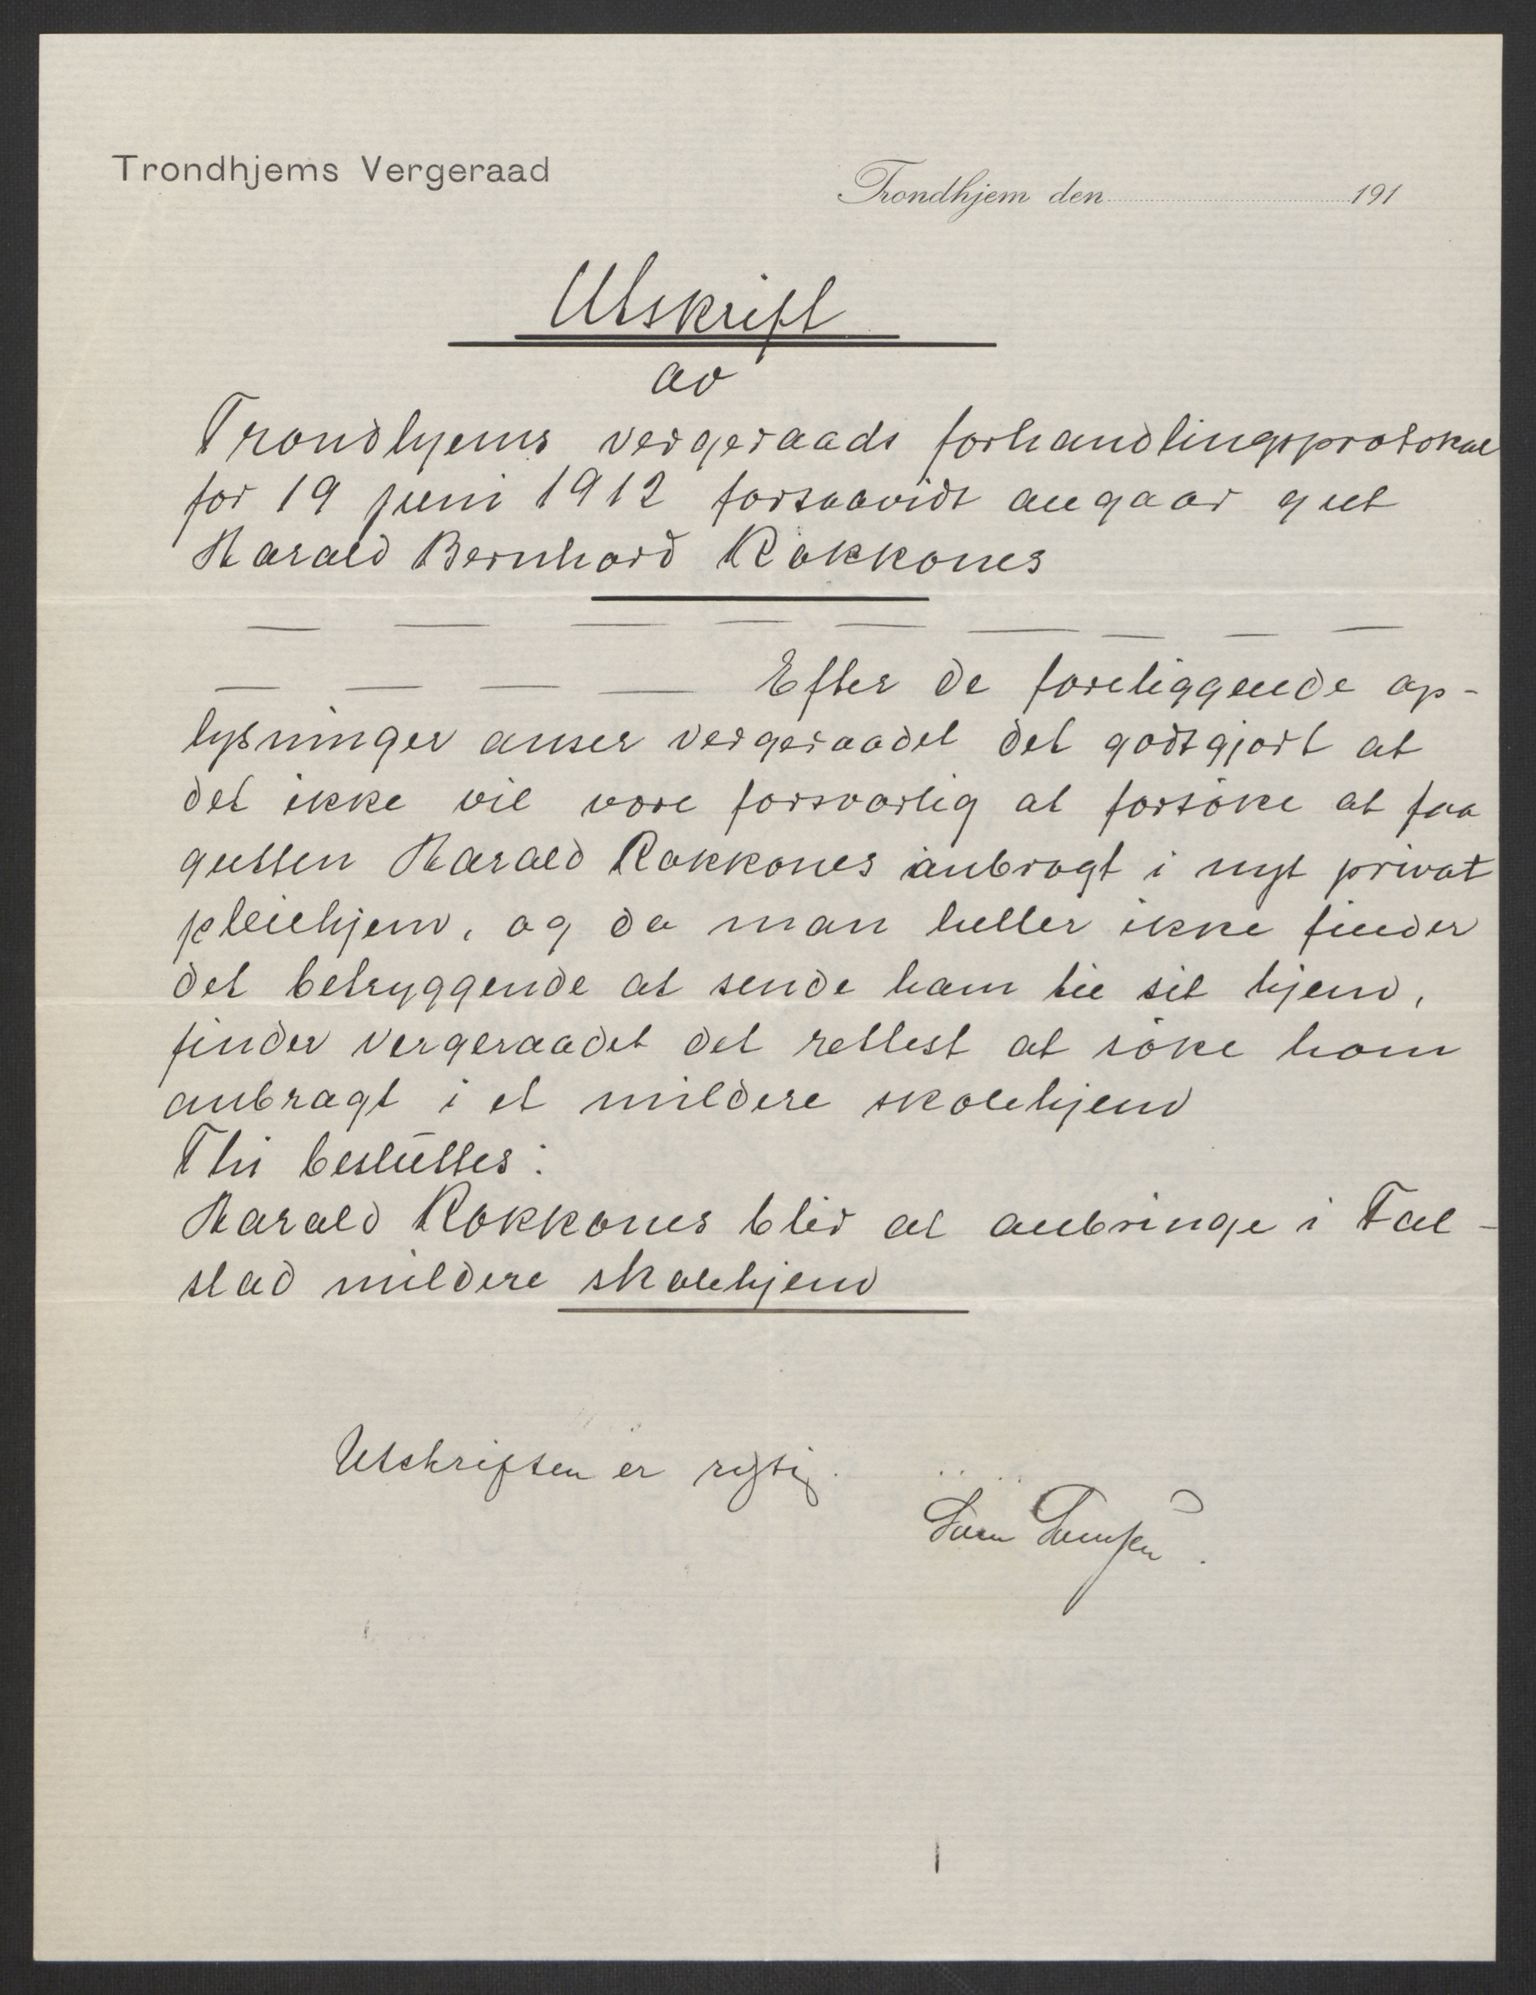 Trondhjems Vergeraad
Trondhjem den 191
Utskrift
av
Trondhjems vergeraads forhandlingsprotokol
for 19 juni 1912 forsaavidt angaar gut
Harald Bernhard Rokkones
Efter de foreliggende op-
lysninger anser vergeraadet det godtgjort at
det ikke vil være forsvarlig at forsöke at faa
gutten Harald Rokkones anbragt i nyt privat
pleiehjem, og da man heller ikke finder
det betryggende at sende ham til sit hjem,
finder vergeraadet det rettest at söke ham
anbragt i et mildere skolehjem
Thi besluttes:
Harald Rokkones blir at anbringe i Fal-
stad mildere skolehjem
Utskriften er rigtig.